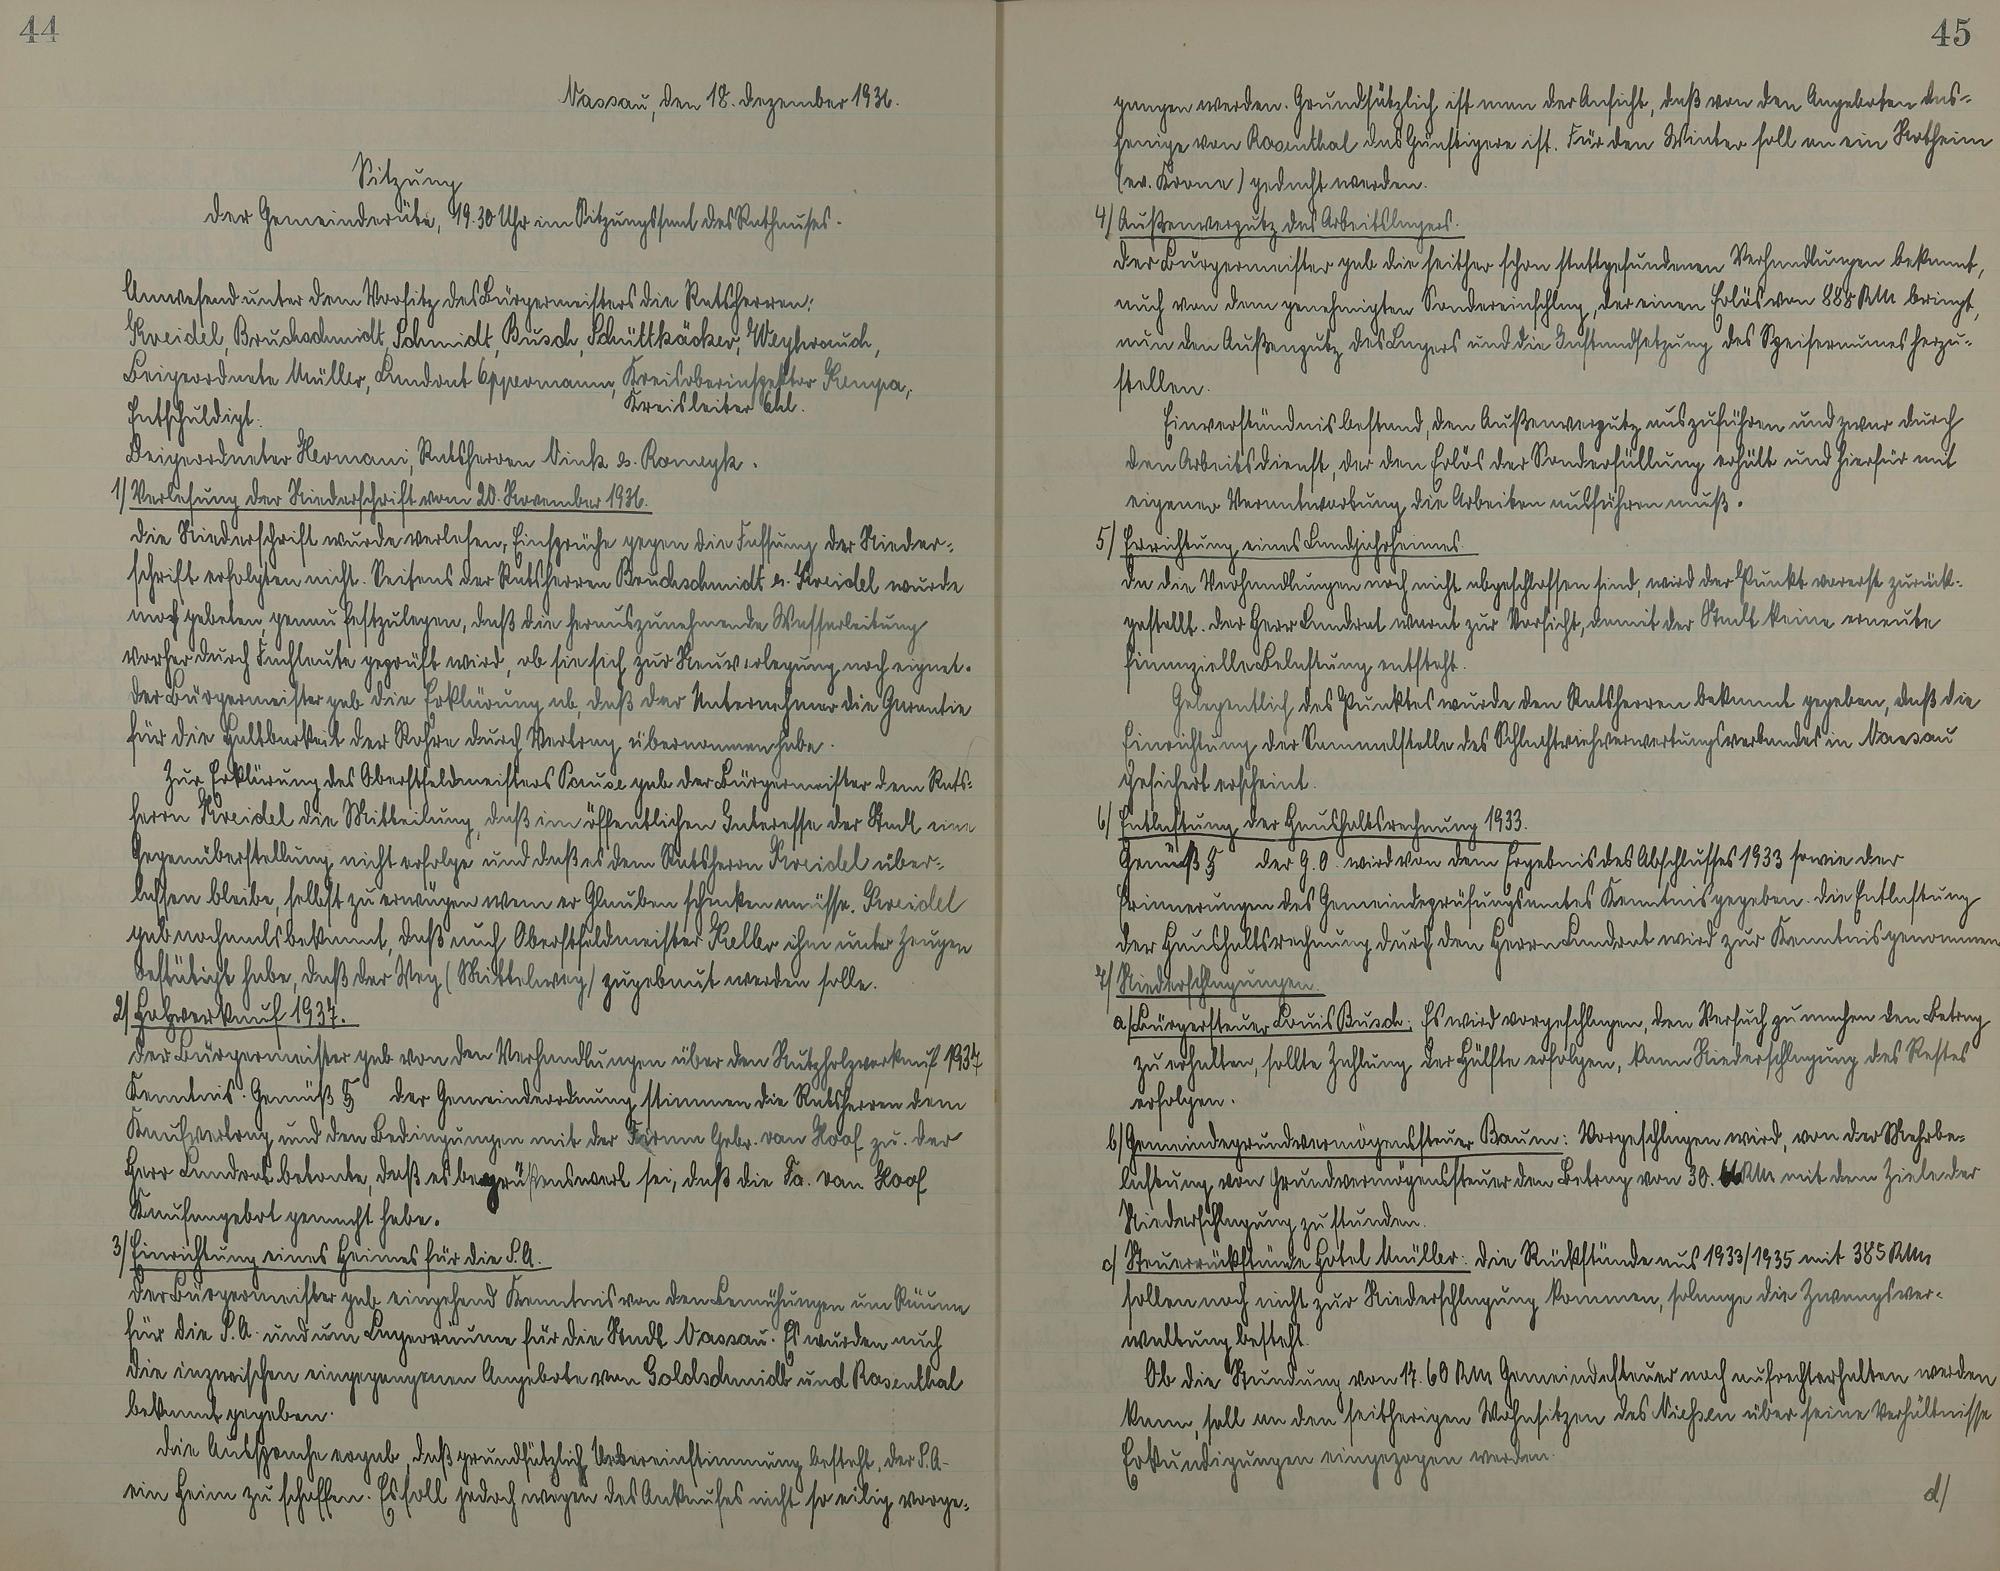 44
Nassau, den 18. Dezember 1936.
Sitzung
der Gemeinderäte, 19.30 Uhr im Sitzungssaal des Rathauses.
Anwesend unter dem Vorsitz des Bürgermeisters die Ratsherren:
Kreidel, Bruchschmidt, Schmidt, Busch, Schüttkäcker, Weyhrauch,
Beigeordnete Müller, Landrat Oppermann, Kreisoberinspektor Kempa,
Kreisleiter Ohl.
Entschuldigt.
Beigeordneter Hermani, Ratsherren Vink u. Romeyk.
1/ Verlesung der Niederschrift vom 20. November 1936.
Die Niederschrift wurde verlesen, Einsprüche gegen die Fassung der Nieder-
schrift erfolgten nicht. Seitens der Ratsherren Bruchschmidt u. Kreidel wurde
noch gebeten, genau festzulegen, daß die herauszunehmende Wasserleitung
vorher durch Fachleute geprüft wird, ob sie sich zur Neuverlegung noch eignet.
Der Bürgermeister gab die Erklärung ab, daß der Unternehmer die Garantie
für die Haltbarkeit der Rohre durch Vertrag übernommen habe.
Zur Erklärung des Oberstfeldmeisters Pause gab der Bürgermeister dem Rats-
herrn Kreidel die Mitteilung, daß im öffentlichen Interesse der Stadt eine
Gegenüberstellung nicht erfolge und daß es dem Ratsherrn Kreidel über-
lassen bleibe, selbst zu erwägen wem er Glauben schenken müsse. Kreidel
gab nochmals bekannt, daß auch Oberstfeldmeister Keller ihm unter Zeugen
bestätigt habe, daß der Weg (Mittelweg) zugebaut werden solle.
2/ Holzverkauf 1937.
Der Bürgermeister gab von den Verhandlungen über den Nutzholzverkauf 1937
Kenntnis. Gemäß § der Gemeindeordnung stimmen die Ratsherren dem
Kaufvertrag und den Bedingungen mit der Firma Gebr. van Hoof zu. Der
Herr Landrat betonte, daß es begrüßenswert sei, daß die Fa. van Hoof
Kaufangebot gemacht habe.
3/ Einrichtung eines Heimes für die S.A.
Der Bürgermeister gab eingehend Kenntnis von den Bemühungen um Räume
für die S.A. und um Lagerräume für die Stadt Nassau. Es wurden auch
die inzwischen eingegangenen Angebote von Goldschmidt und Rosenthal
bekannt gegeben.
Die Aussprache ergab, daß grundsätzlich Uebereinstimmung besteht, der S.A.
ein Heim zu schaffen. Es soll jedoch wegen des Ankaufes nicht so eilig vorge-
45
gangen werden. Grundsätzlich ist man der Ansicht, daß von den Angeboten das-
jenige von Rosenthal das Günstigere ist. Für den Winter soll an ein Notheim
(ev. Krone) gedacht werden.
4/ Außenverputz des Arbeitslagers.
Der Bürgermeister gab die seither schon stattgefundenen Verhandlungen bekannt,
auch von dem genehmigten Sondereinschlag, der einen Erlös von 888 RM bringt,
nun den Außenputz des Lagers und die Instandsetzung des Speiseraumes herzu-
stellen.
Einverständnis bestand, den Außenverputz auszuführen und zwar durch
den Arbeitsdienst, der den Erlös der Sonderfällung erhält und hierfür mit
eigener Verantwortung die Arbeiten ausführen muß.
5/ Errichtung eines Landjahrheimes.
Da die Verhandlungen noch nicht abgeschlossen sind, wird der Punkt vorerst zurück-
gestellt. Der Herr Landrat warnt zur Vorsicht, damit der Stadt keine erneute
finanzielle Belastung entsteht.
Gelegentlich des Punktes wurde den Ratsherren bekannt gegeben, daß die
Einrichtung der Sammelstelle des Schlachtviehverwertungsverbandes in Nassau
gesichert erscheint.
6/ Entlastung der Haushaltsrechnung 1933.
Gemäß § der G.O. wird von dem Ergebnis des Abschlusses 1933 sowie der
Erinnerungen des Gemeindeprüfungsamtes Kenntnis gegeben. Die Entlastung
der Haushaltsrechnung durch den Herrn Landrat wird zur Kenntnis genommen
7/ Niederschlagungen.
a/ Bürgersteuer Louis Busch: Es wird vorgeschlagen, den Versuch zu machen den Betrag
zu erhalten, sollte Zahlung der Hälfte erfolgen, kann Niederschlagung des Restes
erfolgen.
b/ Gemeindegrundvermögenssteuer Baum: Vorgeschlagen wird, von der Mehrbe-
lastung von Grundvermögenssteuer den Betrag von 30.66 RM mit dem Ziele der
Niederschlagung zu stunden.
c/ Steuerrückstände Hotel Müller: Die Rückstände aus 1933/1935 mit 385 RM
sollen noch nicht zur Niederschlagung kommen, solange die Zwangsver-
waltung besteht.
Ob die Stundung von 17.60 RM Gemeindesteuer noch aufrechterhalten werden
kann, soll an den seitherigen Wohnsitzen des Niehsen über seine Verhältnisse
Erkundigungen eingezogen werden.
d/